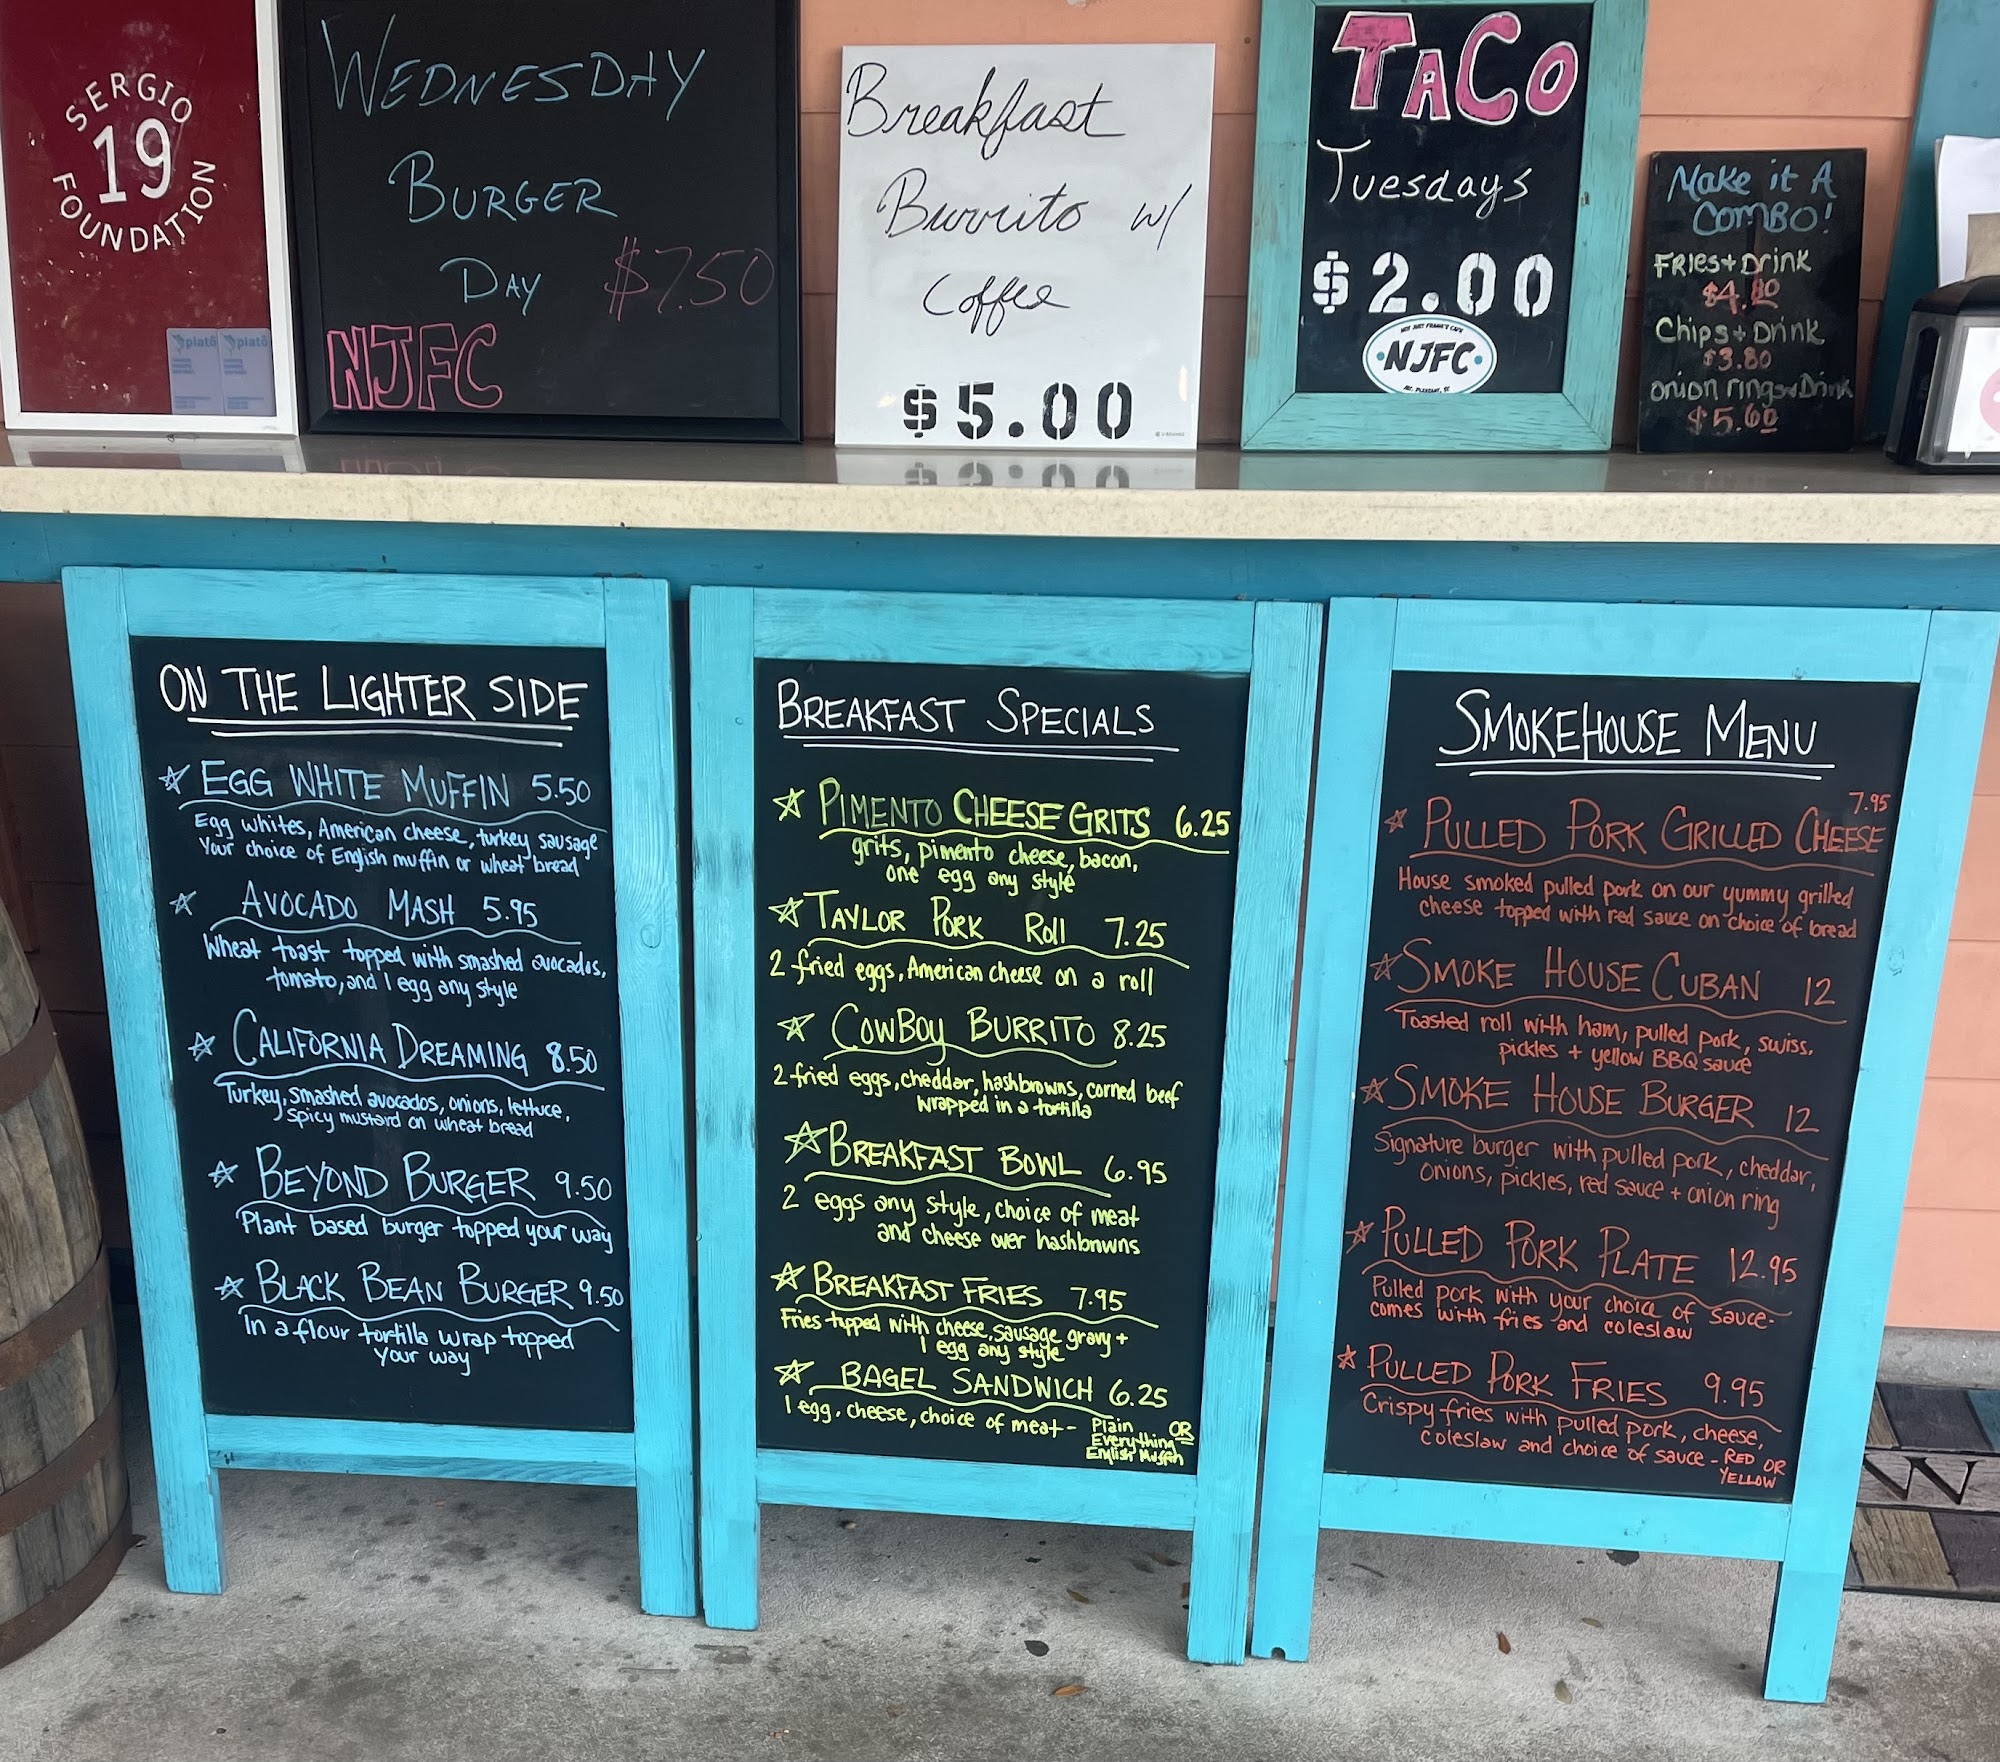 SERGIO
19
FOUNDATION
plato plato
WEDNESDAY
BURGER
DAY $7.50
NJFC
Breakfast
Burrito w/
Coffee
$5.00
TACO
Tuesdays
$2.00
NOT JUST FRANK'S CAFE
NJFC
MT. PLEASANT, SC
Make it A
COMBO!
FRIES + Drink
$4.80
Chips + Drink
$3.80
onion rings + Drink
$5.60
ON THE LIGHTER SIDE
EGG WHITE MUFFIN 5.50
Egg whites, American cheese, turkey sausage
Your choice of English muffin or wheat bread
AVOCADO MASH 5.95
Wheat toast topped with smashed avocados,
tomato, and 1 egg any style
CALIFORNIA DREAMING 8.50
Turkey, smashed avocados, onions, lettuce,
spicy mustard on wheat bread
BEYOND BURGER 9.50
Plant based burger topped your way
BLACK BEAN BURGER 9.50
In a flour tortilla wrap topped
your way
BREAKFAST SPECIALS
PIMENTO CHEESE GRITS 6.25
grits, pimento cheese, bacon,
one egg any style
TAYLOR PORK Roll 7.25
2 fried eggs, American cheese on a roll
COWBOY BURRITO 8.25
2 fried eggs, cheddar, hashbrowns, corned beef
wrapped in a tortilla
BREAKFAST BOWL 6.95
2 eggs any style, choice of meat
and cheese over hashbrowns
BREAKFAST FRIES 7.95
Fries topped with cheese, sausage gravy +
1 egg any style
BAGEL SANDWICH 6.25
1 egg, cheese, choice of meat - Plain OR
Everything
English Muffin
SMOKEHOUSE MENU
7.95
PULLED PORK GRILLED CHEESE
House smoked pulled pork on our yummy grilled
cheese topped with red sauce on choice of bread
SMOKE HOUSE CUBAN 12
Toasted roll with ham, pulled pork, swiss,
pickles + yellow BBQ sauce
SMOKE HOUSE BURGER 12
Signature burger with pulled pork, cheddar,
onions, pickles, red sauce + onion ring
PULLED PORK PLATE 12.95
Pulled pork with your choice of sauce-
comes with fries and coleslaw
PULLED PORK FRIES 9.95
Crispy fries with pulled pork, cheese,
coleslaw and choice of sauce - RED OR
YELLOW
W